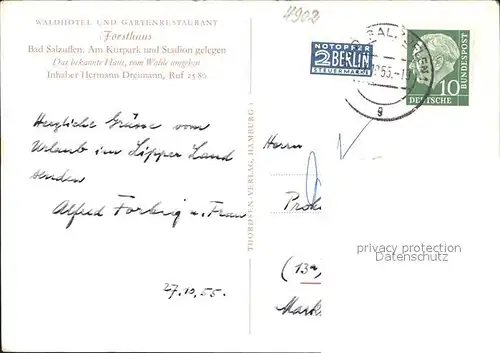 4902
WALDHOTEL UND GARTENRESTAURANT
Forsthaus
Bad Salzuflen. Am Kurpark und Stadion gelegen
Das bekannte Haus, vom Walde umgeben
Inhaber Hermann Dreimann, Ruf 2580
NOTOPFER
2 BERLIN
STEUERMARKE
DEUTSCHE
BUNDESPOST
10
g
Herzliche Grüsse vom
Urlaub im Lipper Land
senden
Alfred Forbrig u. Frau
27.10.55.
THORDSEN-VERLAG, HAMBURG
Herrn
Prok
(13a
Mark
privacy protection
Datenschutz